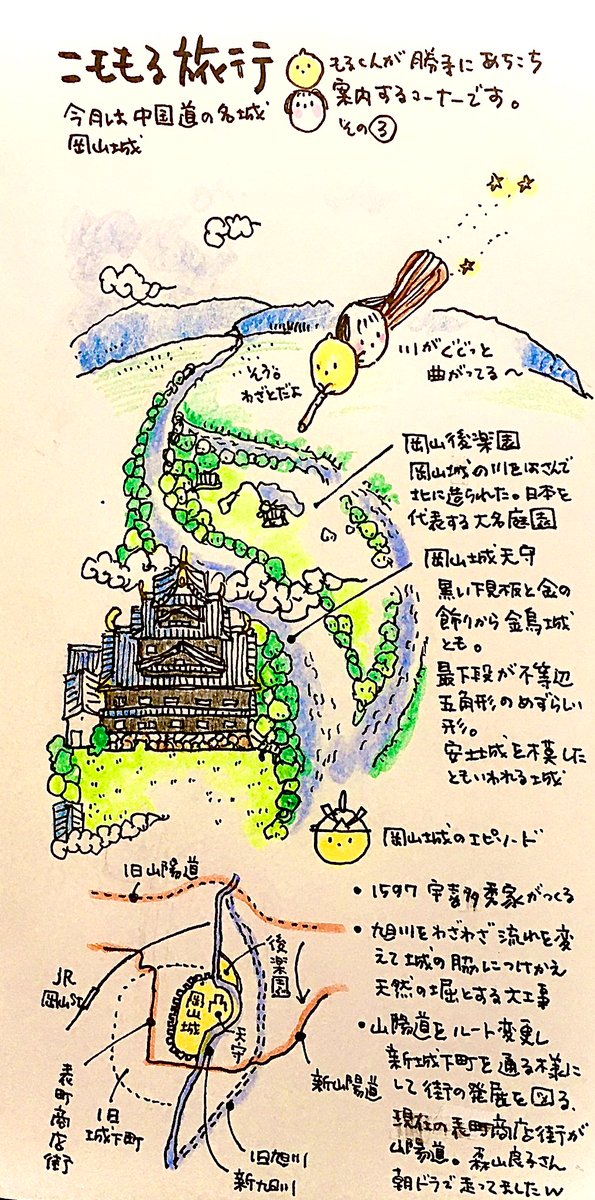 こももる旅行
もるくんが勝手にあちこち
案内するコーナーです。
その③
今月は中国道の名城
岡山城
川がぐぐっと
曲がってる〜
そう。
わざとだよ
岡山後楽園
岡山城の川をはさんで
北に造られた。日本を
代表する大名庭園
岡山城天守
黒い下見板と金の
飾りから金烏城
とも。
最下段が不等辺
五角形のめずらしい
形。
安土城を模した
ともいわれる城
岡山城のエピソード
• 1597 宇喜多秀家がつくる
• 旭川をわざわざ流れを変
えて城の脇につけかえ
天然の堀とする大工事
• 山陽道をルート変更し
新城下町を通る様に
して街の発展を図る、
現在の表町商店街が
山陽道。森山良子さん
朝ドラで走ってましたw
旧山陽道
JR
岡山St
後楽園
岡山城
天守
新山陽道
表町商店街
旧
城下町
旧旭川
新旭川